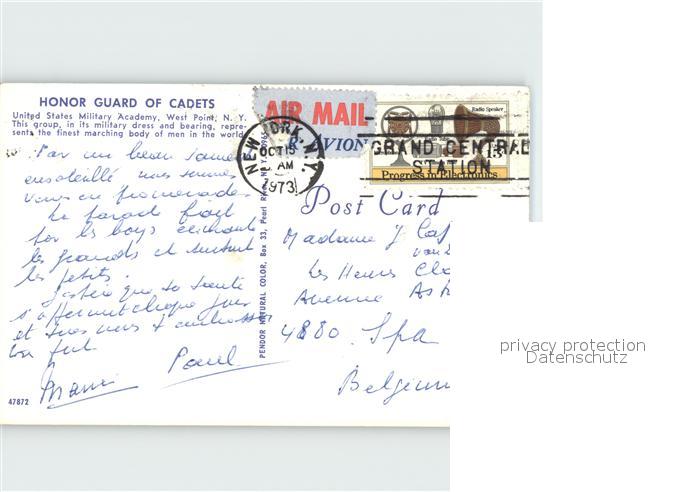 HONOR GUARD OF CADETS
United States Military Academy, West Point, N. Y.
This group, in its military dress and bearing, repre-
sents the finest marching body of men in the world.
AIR MAIL
PAR AVION
NEW YORK, N.Y.
OCT 15
AM
1973
GRAND CENTRAL
STATION
Radio Speaker
Radio Tube
Progress in Electronics
Post Card
Par un beau samedi
ensoleillé nous sommes
venus en promenade.
La parade fait
les boys
les grands et surtout
les petits.
J'espère que ta santé
s'affermit chaque jour
et tous nous t'embrassons
Paul
PENDOR NATURAL COLOR, Box 33, Pearl River, N.Y. 10965
Madame J
Les Heures
Avenue
4880 Spa
Belgium
47872
privacy protection
Datenschutz